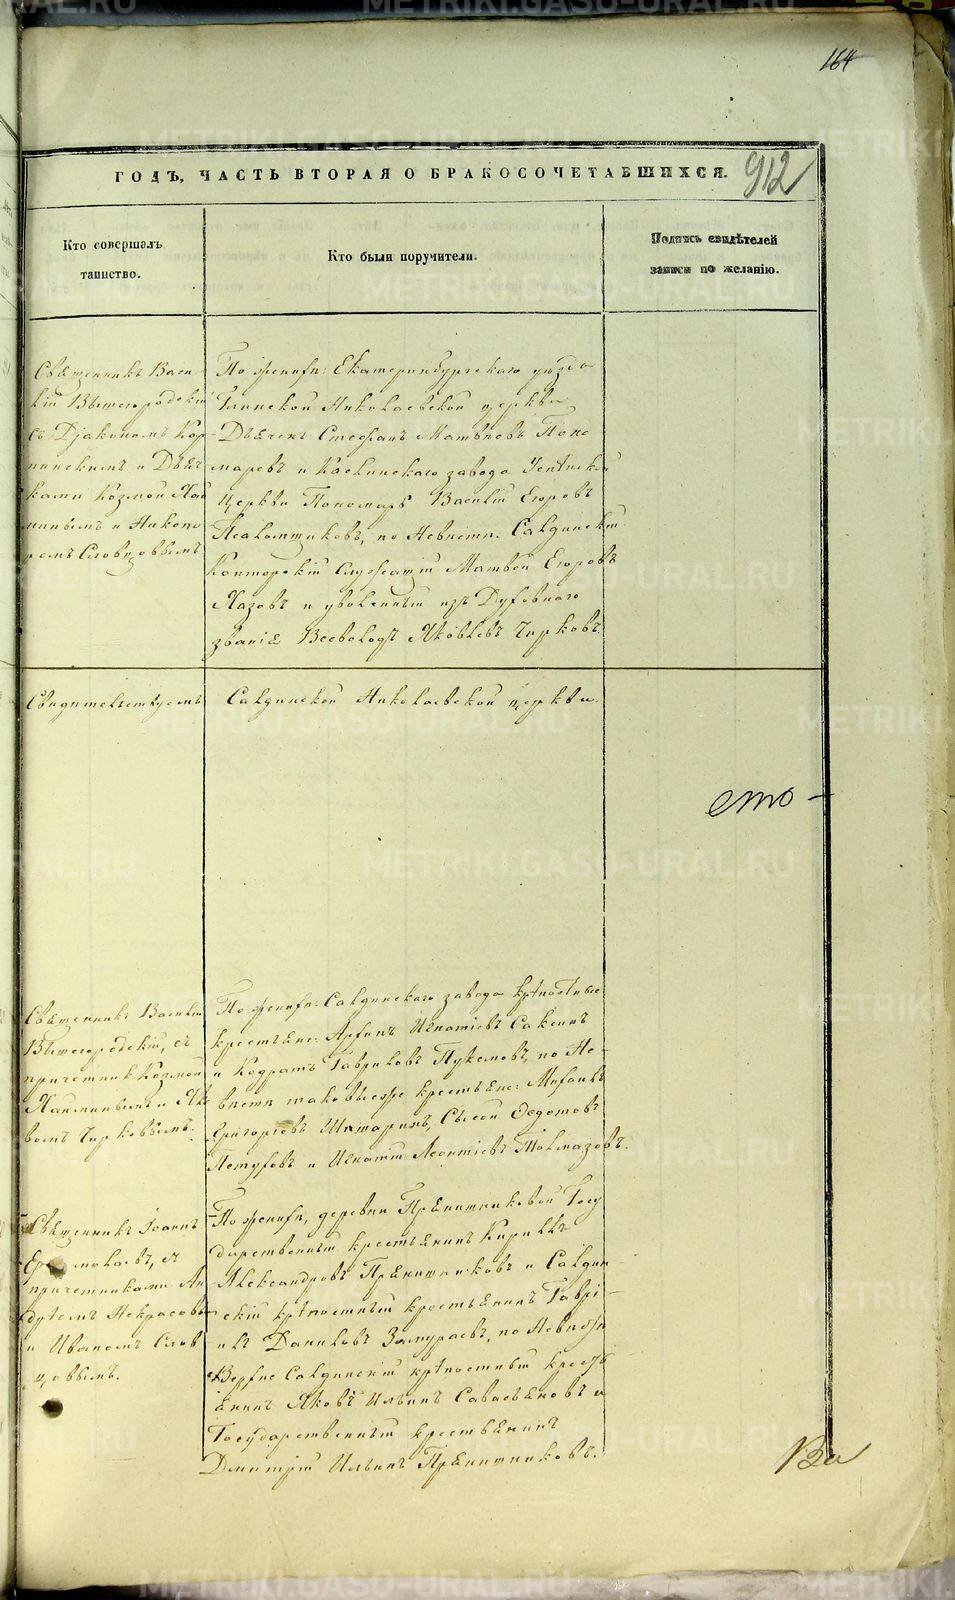 164
ГОДЪ, ЧАСТЬ ВТОРАЯ О БРАКОСОЧЕТАВШИХСЯ.
912
Кто совершалъ
таинство.
Кто были поручители.
Подпись свидѣтелей
записи по желанію.
Священникъ Васи-
лій Вышегородскій
съ Діакономъ Кор-
нинскимъ и Дьяч-
ками Козмой Най
минымъ и Никано
ромъ Словцовымъ
По женихѣ: Екатеринбургскаго уѣзда
Глинской Николаевской церкви
Дьячекъ Стефанъ Матвѣевъ Поно
маревъ и Каслинскаго завода Успенской
Церкви Пономарь Василій Егоровъ
Псаломщиковъ, по Невѣстѣ: Салдинскій
Конторскій Служащій Матвей Егоровъ
Мазовъ и уволенный изъ Духовнаго
званія Всеволодъ Яковлевъ Чирковъ.
Свидѣтельствуемъ
Салдинской Николаевской церкви
сто-
Священникъ Василій
Вышегородскій, съ
причетник Козмой
Найминымъ и Яко
вомъ Чирковымъ.
По женихѣ: Салдинскаго завода крѣпостные
крестьяне: Архипъ Игнатіевъ Саксинъ
и Кодратъ Гавриловъ Пужемовъ, по Не-
вѣстѣ таковые же крестьяне: Михаилъ
Григорьевъ Шатаринъ, Сысой Ѳедотовъ
Петуховъ и Игнатій Леонтіевъ Толмазовъ.
Священникъ Іоаннъ
Ермолаевъ, съ
причетниками Ан
дреемъ Некрасовы
и Иваномъ Слов
цовымъ.
По женихѣ, деревни Пряничниковой Госу
дарственный крестьянинъ Кириллъ
Александровъ Пряничниковъ и Салдин
скій крѣпостный крестьянинъ Гаврі-
илъ Даниловъ Замураевъ, по Невѣстѣ
Верхне Салдинскій крѣпостный кресть
янинъ Яковъ Ильинъ Савастьяновъ и
Государственный крестьянинъ
Дмитрій Ильинъ Пряничниковъ.
Ва
METRIKI.GASO-URAL.RU